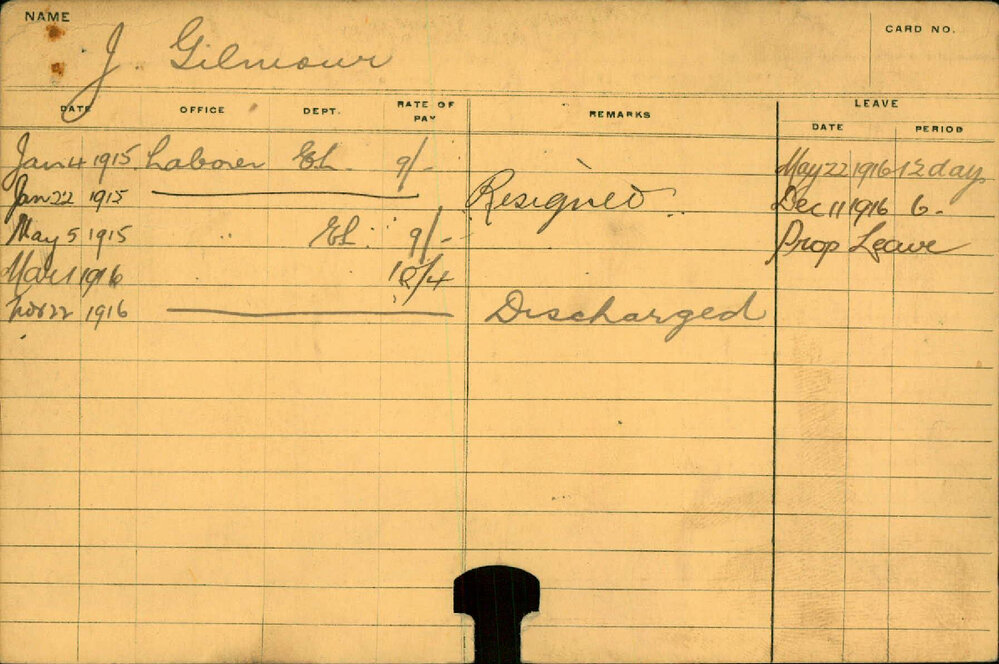 NAME
CARD NO.
J. Gilmour
DATE OFFICE DEPT. RATE OF PAY REMARKS LEAVE
DATE PERIOD
Jan 4 1915 Laborer EL. 9/- May 22 1916 12 days
Jan 22 1915 Resigned Dec 11 1916 6.
May 5 1915 " EL. 9/- Prop Leave
Mar 1 1916 10/4
Nov 22 1916 Discharged